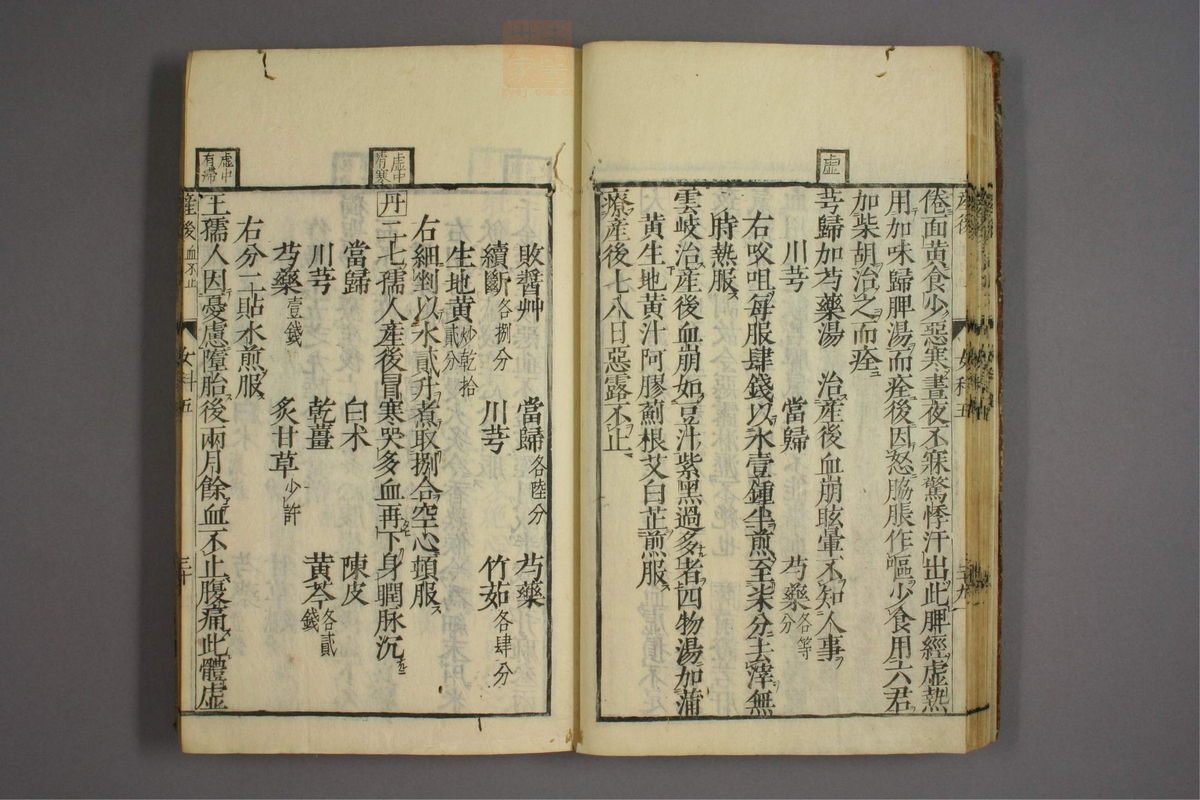 産後
女科五
倦面黄食少惡寒晝夜不寐驚悸汗出此脾經虛熱
用加味歸脾湯而痊後因怒脇脹作嘔少食用六君
加柴胡治之而痊
虛
芎歸加芍藥湯 治産後血崩眩暈不知人事
川芎 當歸 芍藥各等分
右㕮咀每服肆錢以水壹鍾半煎至柒分去滓無
時熱服
雲岐治産後血崩如豆汁紫黑過多者四物湯加蒲
黄生地黄汁阿膠薊根艾白芷煎服
療産後七八日惡露不止
敗醬艸 當歸各陸分 芍藥
續斷各捌分 川芎 竹茹各肆分
生地黄炒乾拾貳分
右細剉以水貳升煮取捌合空心頓服
虛中有寒
丹二七孺人産後冒寒哭多血再下身潤脉沉
當歸 白术 陳皮
川芎 乾薑 黄芩各貳錢
芍藥壹錢 炙甘草少許
右分二貼水煎服
虛中有滯
王孺人因憂慮墮胎後兩月餘血不止腹痛此體虛
産後血不止
女科五
三十